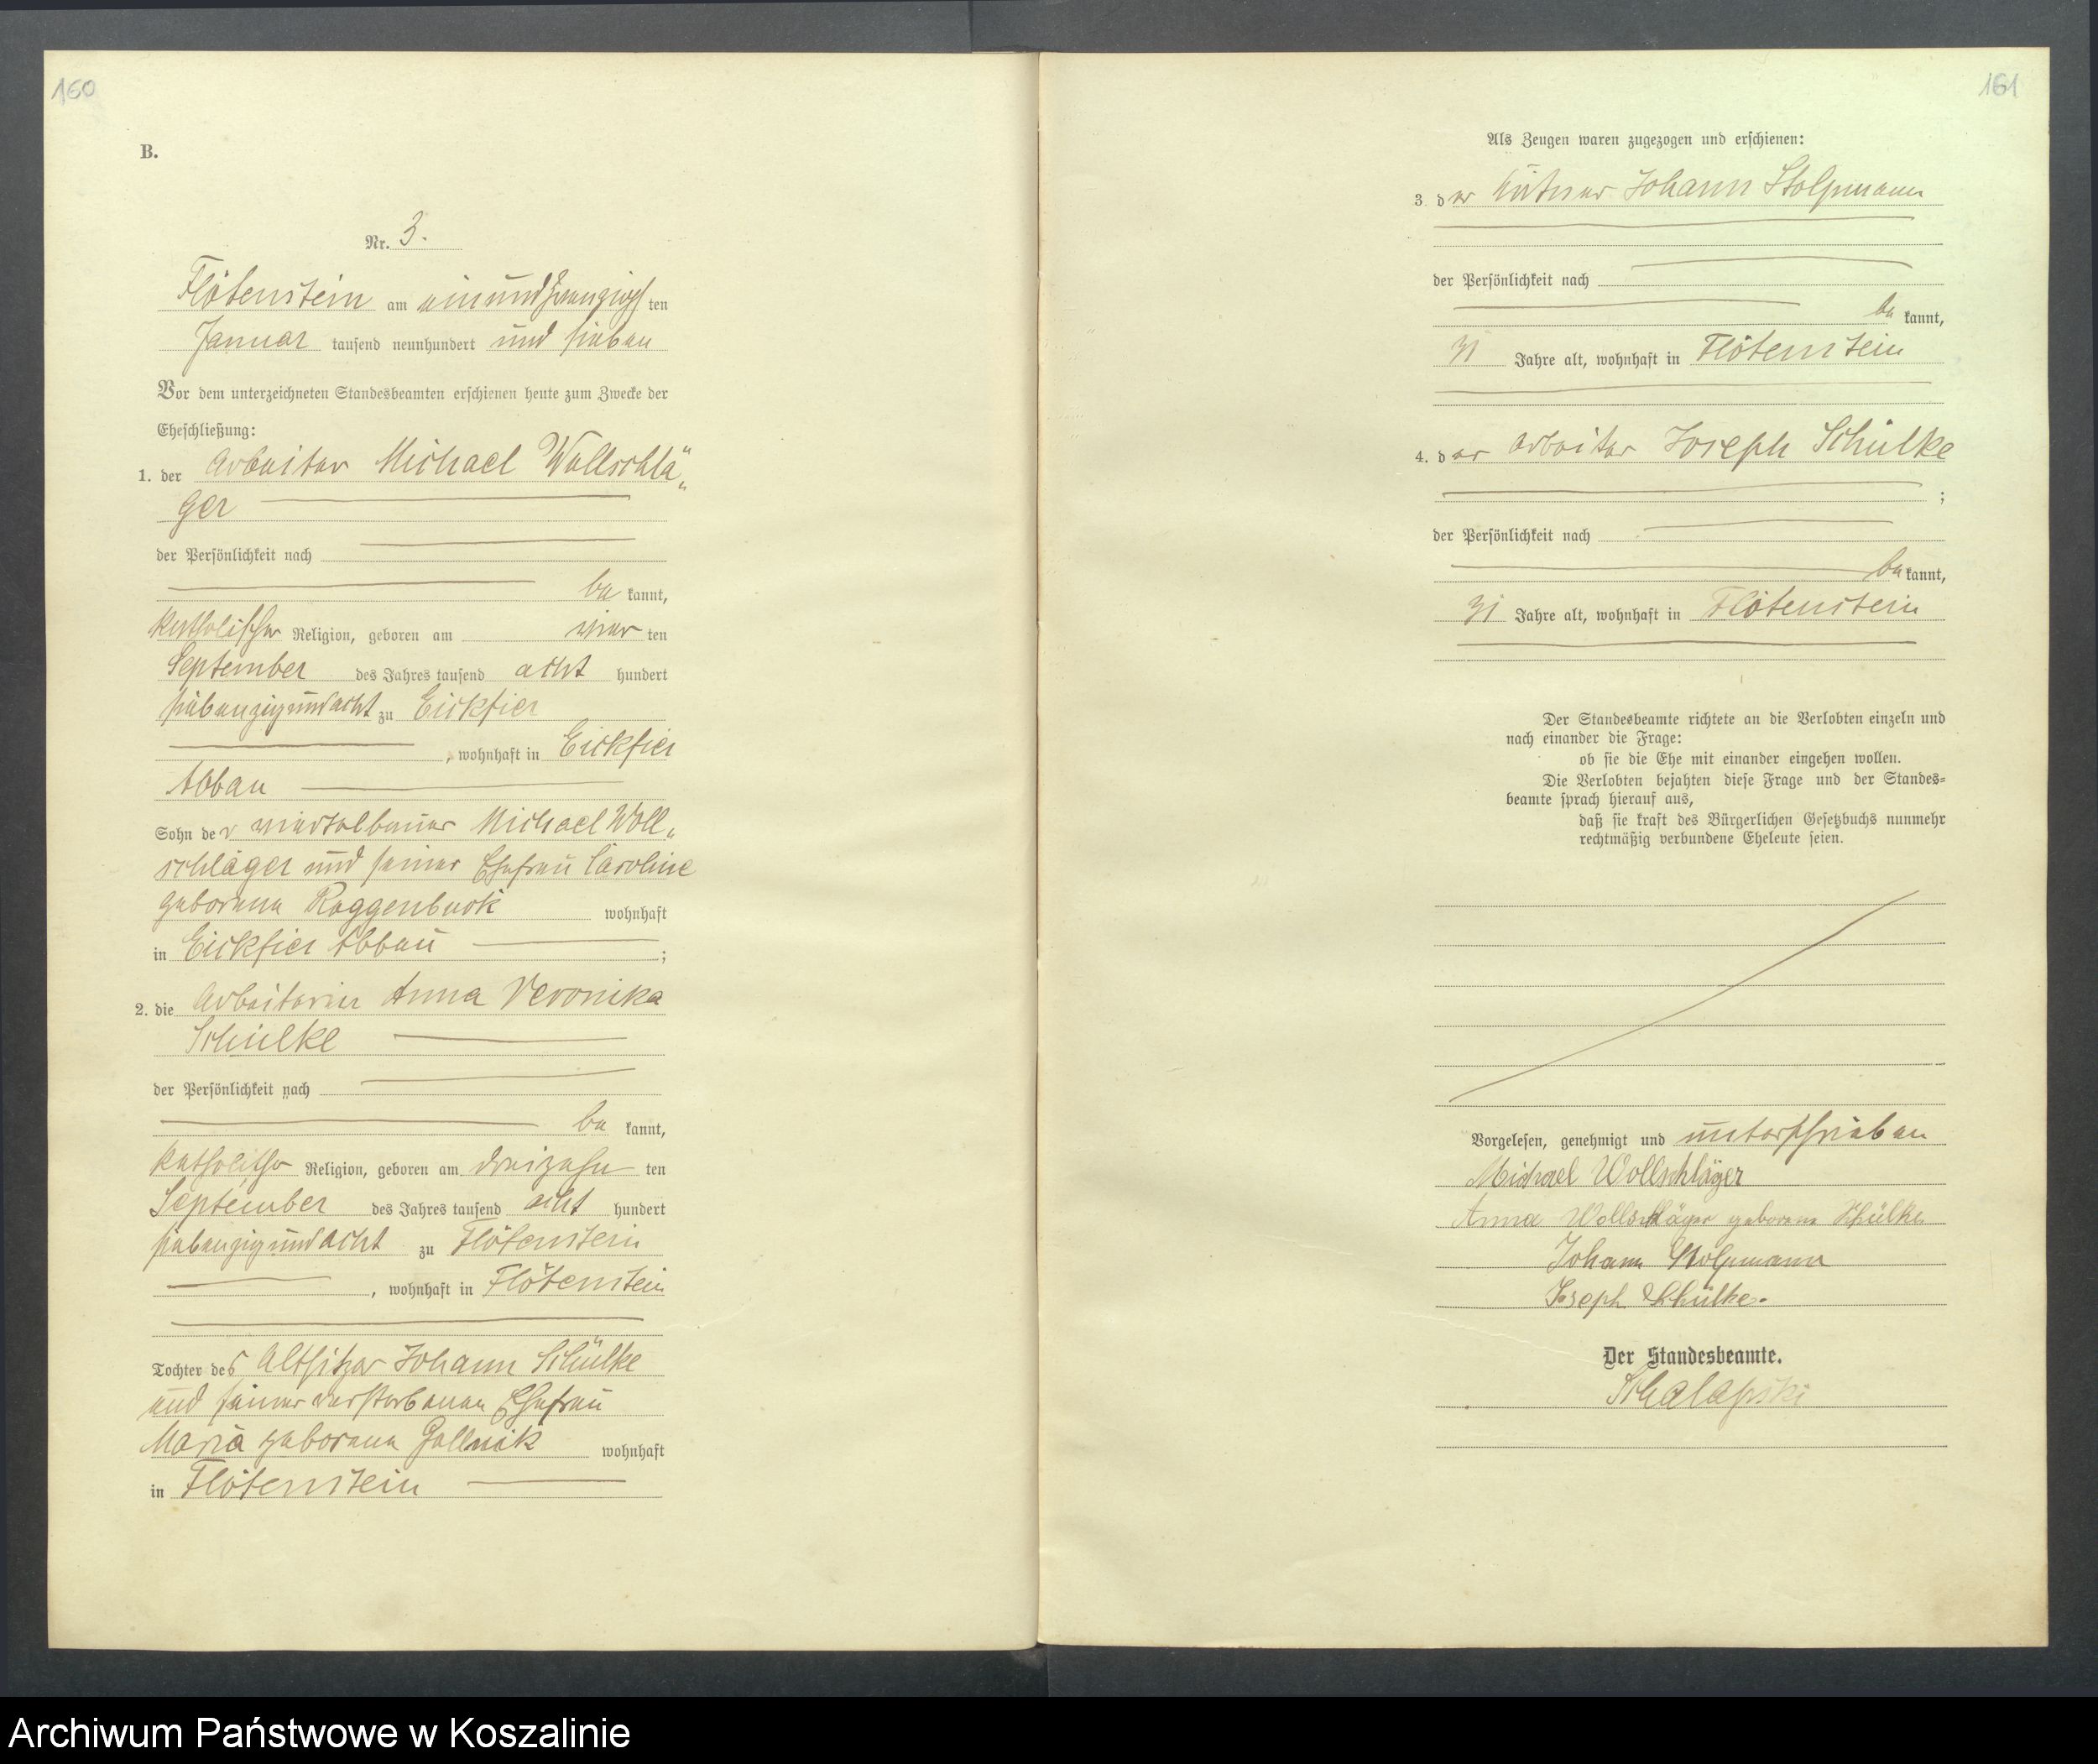 160
B.
Nr. 3.
Flötenstein am einundzwanzigsten
Januar tausend neunhundert und sieben
Vor dem unterzeichneten Standesbeamten erschienen heute zum Zwecke der
Eheschließung:
1. der Arbeiter Michael Wollschlä„
ger
der Persönlichkeit nach
be kannt,
katholischer Religion, geboren am vier ten
September des Jahres tausend acht hundert
siebenzigundacht zu Eickfier
, wohnhaft in Eickfier
Abbau
Sohn der Viertelbauer Michael Woll„
schläger und seiner Ehefrau Caroline
geborene Roggenbuck wohnhaft
in Eickfier Abbau ;
2. die Arbeiterin Anna Veronika
Schülke
der Persönlichkeit nach
be kannt,
katholischer Religion, geboren am dreizehn ten
September des Jahres tausend acht hundert
siebenzigundacht zu Flötenstein
, wohnhaft in Flötenstein
Tochter des Altsitzer Johann Schülke
und seiner verstorbenen Ehefrau
Maria geborene Gollnik wohnhaft
in Flötenstein
161
Als Zeugen waren zugezogen und erschienen:
3. der Johann Stolpmann
der Persönlichkeit nach
be kannt,
31 Jahre alt, wohnhaft in Flötenstein
4. der Arbeiter Joseph Schülke
;
der Persönlichkeit nach
be kannt,
31 Jahre alt, wohnhaft in Flötenstein
Der Standesbeamte richtete an die Verlobten einzeln und
nach einander die Frage:
ob sie die Ehe mit einander eingehen wollen.
Die Verlobten bejahten diese Frage und der Standes-
beamte sprach hierauf aus,
daß sie kraft des Bürgerlichen Gesetzbuchs nunmehr
rechtmäßig verbundene Eheleute seien.
Vorgelesen, genehmigt und unterschrieben
Michael Wollschläger
Anna Wollschläger geborene Schülke
Johann Stolpmann
Joseph Schülke.
Der Standesbeamte.
Archiwum Państwowe w Koszalinie